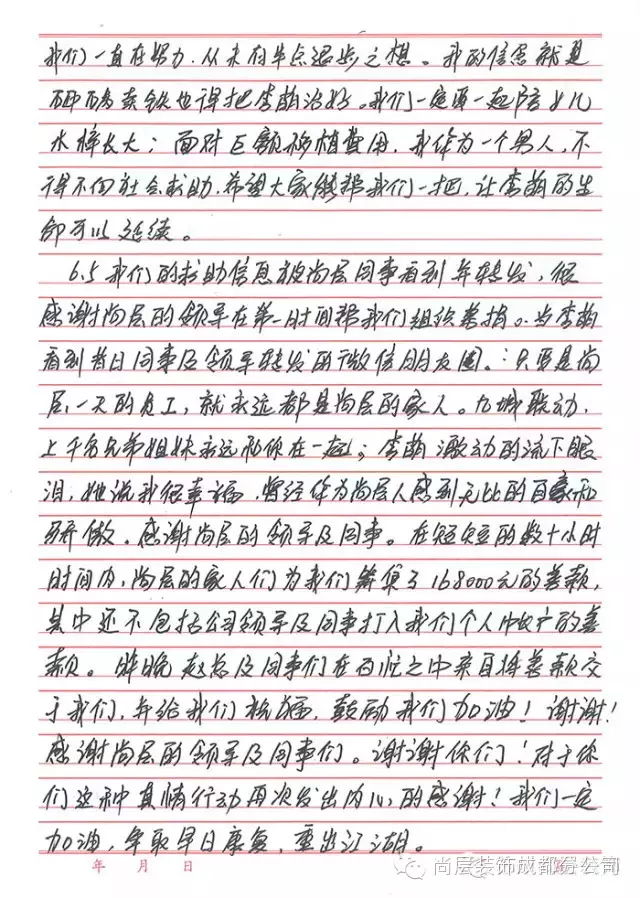 我们一直在努力.从未有半点退步之想。我的信念就是
砸锅卖铁也得把李萌治好。我们一定要一起陪女儿
水梓长大；面对巨额移植费用,我作为一个男人,不
得不向社会求助.希望大家能帮我们一把,让李萌的生
命可以延续。
6.5我们的求助信息被尚层同事看到并转发,很
感谢尚层的领导在第一时间帮我们组织募捐。当李萌
看到昔日同事及领导转发的微信朋友圈。：只要是尚
层一天的员工,就永远都是尚层的家人。九城联动,
上千名兄弟姐妹永远和你在一起；李萌激动的流下眼
泪,她说我很幸福,曾经作为尚层人感到无比的自豪和
骄傲.感谢尚层的领导及同事。在短短的数十小时
时间内,尚层的家人们为我们筹集了168000元的善款,
其中还不包括公司领导及同事打入我们个人帐户的善
款。昨晚赵总及同事们在百忙之中亲自将善款交
于我们,并给我们祝福,鼓励我们加油！谢谢！
感谢尚层的领导及同事们。谢谢你们！对于你
们这种真情行动再次发出内心的感谢！我们一定
加油,争取早日康复,重出江湖。
年 月 日
尚层装饰成都分公司